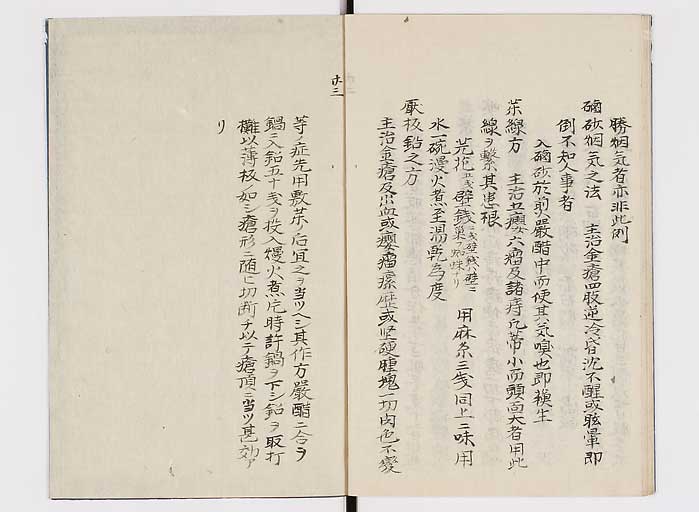 勝烟気者亦非此例
硇砂烟気之法　主治金瘡四肢逆冷昏沈不醒或眩暈即
倒不知人事者
入硇砂於煎嚴醋中而使其気嗅也即穫生
茶線方　主治五癭六瘤及諸痔凡蒂小而頭面大者用此
線ヲ繋其患根
芫花 壁錢　用麻糸三戔同上二味用
水一碗漫火煮至湯乾為度
壓板鉛之方
主治金瘡及出血或癭瘤瘰癧或坚硬腫塊一切肉色不変
廿三
等ノ症先用敷薬ノ后宜之ヲ当ツヘシ其作方嚴醋二合ヲ
鍋ニ入鉛五十戔ヲ投入熳火煮片時許鍋ヲ下シ鉛ヲ取打
擴以薄板ノ如シ瘡形ニ随ヒ切断チ以テ瘡頂ニ当ツ甚効ア
リ